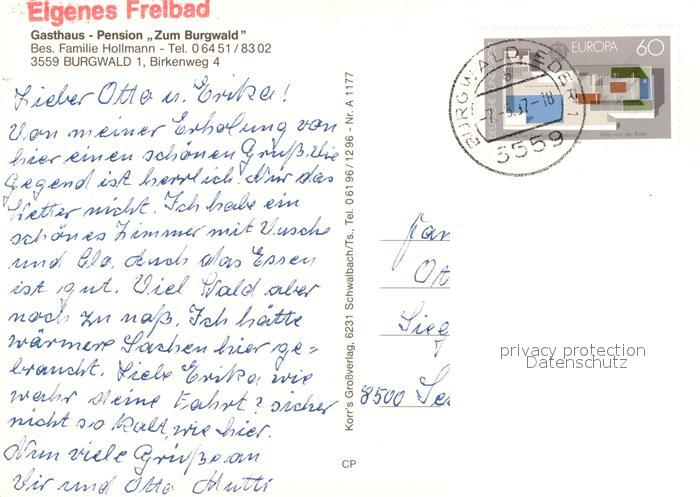 Eigenes Freibad
Gasthaus - Pension „Zum Burgwald"
Bes. Familie Hollmann - Tel. 0 64 51 / 83 02
3559 BURGWALD 1, Birkenweg 4
Lieber Otto u. Erika!
Von meiner Erholung von
hier einen schönen Gruß. Die
Gegend ist herrlich. Nur das
Wetter nicht. Ich habe ein
schönes Zimmer mit Dusche
und Clo. Auch das Essen
ist gut. Viel Wald aber
noch zu naß. Ich hätte
wärmere Sachen hier ge=
braucht. Liebe Erika, wie
wahr deine Fahrt? sicher
nicht so kalt, wie hier.
Nun viele Grüße an
Dir und Otto Mutti
Korr's Großverlag, 6231 Schwalbach/Ts., Tel. 0 61 96 / 12 96 - Nr. A 1177
CP
EUROPA 60
DEUTSCHE BUNDES
Mies van der Rohe
BURGWALD, EDER 1
3559
Fam
Ot
Sieg
8500
privacy protection
Datenschutz